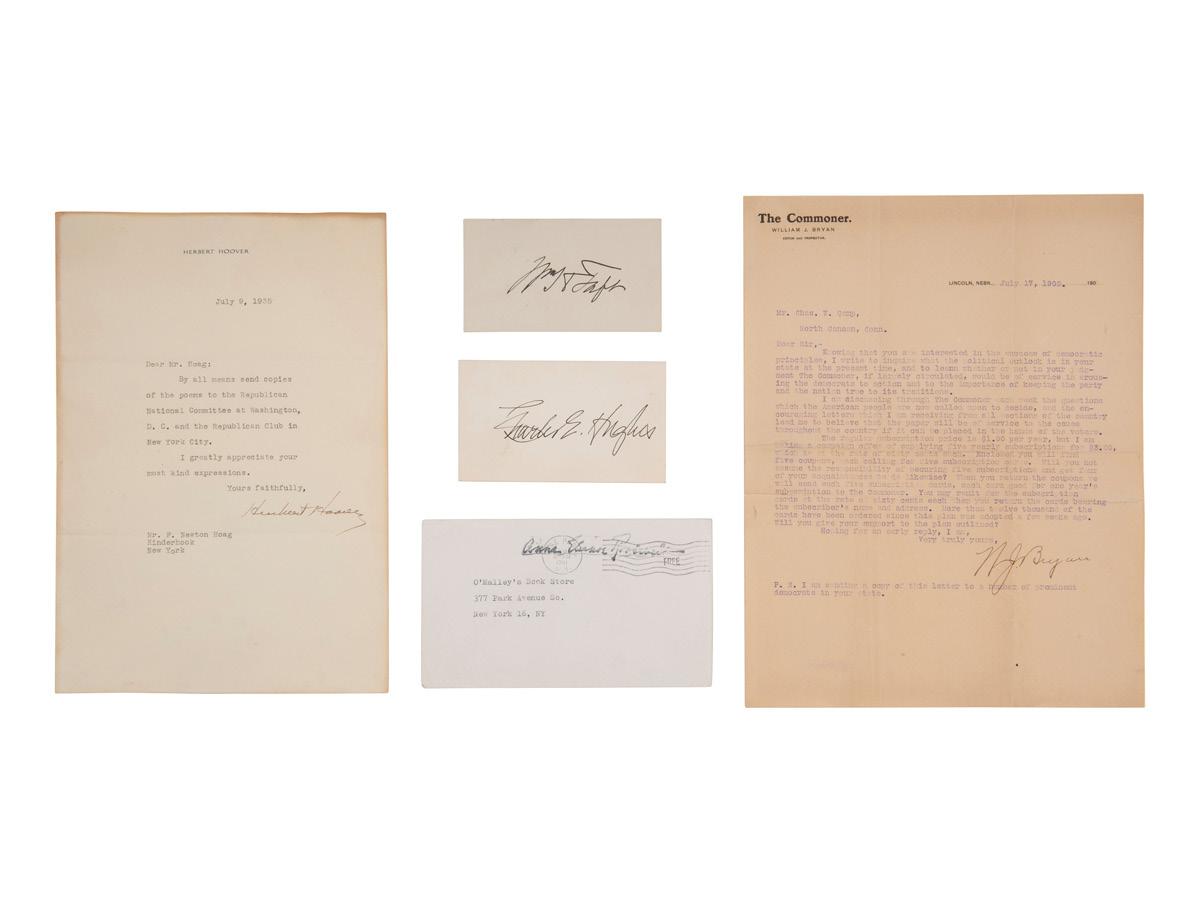 HERBERT HOOVER
July 9, 1935
Dear Mr. Hoag:
By all means send copies
of the poems to the Republican
National Committee at Washington,
D. C. and the Republican Club in
New York City.
I greatly appreciate your
most kind expressions.
Yours faithfully,
Herbert Hoover
Mr. F. Newton Hoag
Kinderhook
New York
Wm H Taft
Charles E. Hughes
Anna Eleanor Roosevelt
FREE
O'Malley's Book Store
377 Park Avenue So.
New York 16, NY
The Commoner.
WILLIAM J. BRYAN
EDITOR AND PROPRIETOR.
LINCOLN, NEBR., July 17, 1905. 190
Mr. Chas. W. Camp,
North Canaan, Conn.
Dear Sir,-
Knowing that you are interested in the success of democratic
principles, I write to inquire what the political outlook is in your
state at the present time, and to learn whether or not in your judg-
ment The Commoner, if largely circulated, would be of service in arous-
ing the democrats to action and to the importance of keeping the party
and the nation true to its traditions.
I am discussing through The Commoner each week the questions
which the American people are now called upon to decide, and the en-
couraging letters which I am receiving from all sections of the country
lead me to believe that the paper will be of service to the cause
throughout the country if it can be placed in the hands of the voters.
The regular subscription price is $1.00 per year, but I am
making a campaign offer of supplying five yearly subscriptions for $3.00,
which is at the rate of sixty cents each. Enclosed you will find
five coupons, each calling for five subscription cards. Will you not
assume the responsibility of securing five subscriptions and get four
of your acquaintances to do likewise? When you return the coupons we
will send such five subscription cards, each card good for one year's
subscription to The Commoner. You may remit for the subscription
cards at the rate of sixty cents each when you return the cards bearing
the subscriber's name and address. More than twelve thousand of the
cards have been ordered since this plan was adopted a few weeks ago.
Will you give your support to the plan outlined?
Hoping for an early reply, I am,
Very truly yours,
W J Bryan
P. S. I am sending a copy of this letter to a number of prominent
democrats in your state.